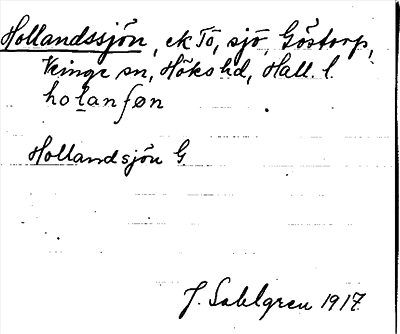 Hollandssjön, ek Tö, sjö, Göstorp,
Veinge sn, Höks hd, Hall. l.
holanʃøn
Hollandsjön G.
J. Sahlgren 1917.